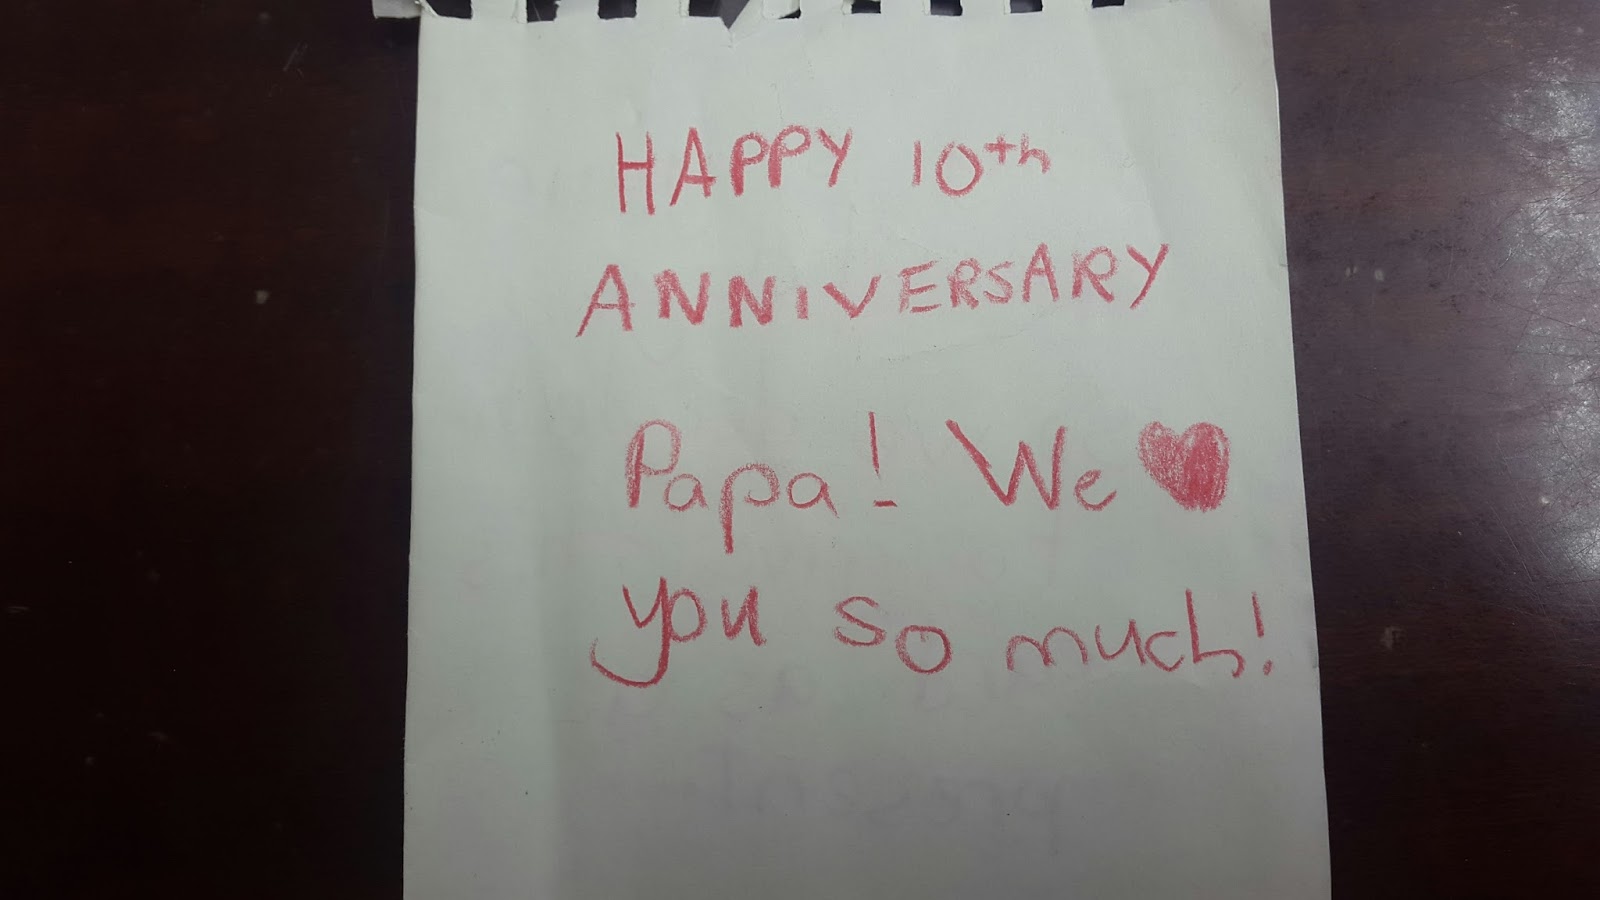 HAPPY 10th
ANNIVERSARY
Papa! We ❤
you so much!